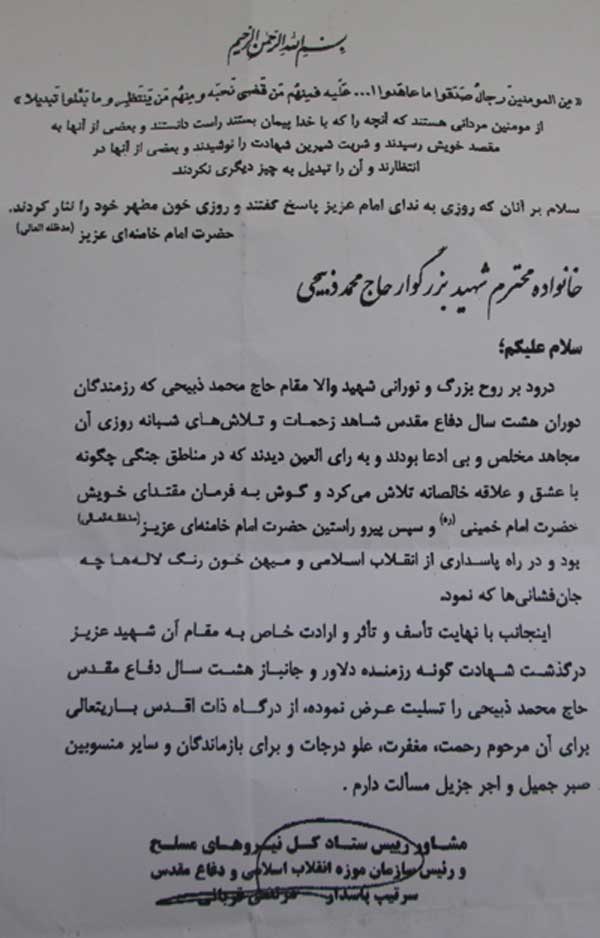 بسم الله الرحمن الرحیم
«من المومنین رجال صدقوا ما عاهدوا ا... علیه فمنهم من قضی نحبه و منهم من ینتظر و ما بدلوا تبدیلا»
از مومنین مردانی هستند که آنچه را که با خدا پیمان بستند راست دانستند و بعضی از آنها به
مقصد خویش رسیدند و شربت شیرین شهادت را نوشیدند و بعضی از آنها در
انتظارند و آن را تبدیل به چیز دیگری نکردند.
سلام بر آنان که روزی به ندای امام عزیز پاسخ گفتند و روزی خون مطهر خود را نثار کردند.
حضرت امام خامنه‌ای عزیز (مدظله العالی)
خانواده محترم شهید بزرگوار حاج محمد ذبیحی
سلام علیکم؛
درود بر روح بزرگ و نورانی شهید والا مقام حاج محمد ذبیحی که رزمندگان
دوران هشت سال دفاع مقدس شاهد زحمات و تلاش‌های شبانه روزی آن
مجاهد مخلص و بی ادعا بودند و به رای العین دیدند که در مناطق جنگی چگونه
با عشق و علاقه خالصانه تلاش می‌کرد و گوش به فرمان مقتدای خویش
حضرت امام خمینی (ره) و سپس پیرو راستین حضرت امام خامنه‌ای عزیز (مدظله‌العالی)
بود و در راه پاسداری از انقلاب اسلامی و میهن خون رنگ لاله‌ها چه
جان‌فشانی‌ها که نمود.
اینجانب با نهایت تأسف و تأثر و ارادت خاص به مقام آن شهید عزیز
درگذشت شهادت گونه رزمنده دلاور و جانباز هشت سال دفاع مقدس
حاج محمد ذبیحی را تسلیت عرض نموده، از درگاه ذات اقدس باریتعالی
برای آن مرحوم رحمت، مغفرت، علو درجات و برای بازماندگان و سایر منسوبین
صبر جمیل و اجر جزیل مسألت دارم .
مشاور رییس ستاد کل نیروهای مسلح
و رئیس سازمان موزه انقلاب اسلامی و دفاع مقدس
سرتیپ پاسدار مرتضی قربانی